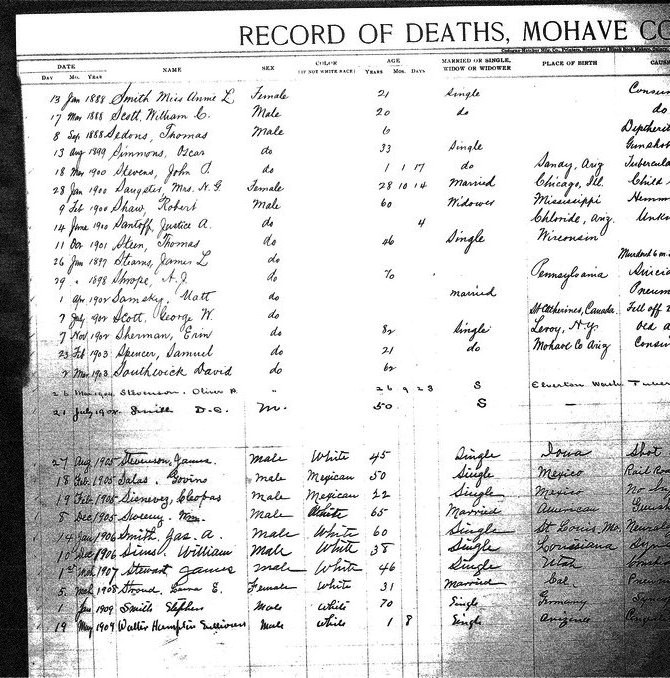 RECORD OF DEATHS, MOHAVE CO
DATE NAME SEX COLOR (IF NOT WHITE RACE) AGE MARRIED OR SINGLE, WIDOW OR WIDOWER PLACE OF BIRTH CAUS
DAY MO. YEAR YEARS MOS. DAYS
13 Jan 1888 Smith Miss Annie L Female 21 Single Consum
17 Mar 1888 Scott, William C. Male 20 do do
8 Sep 1888 Sedons, Thomas Male 6 Diptheri
13 Aug 1899 Simmons, Oscar do 33 Single Gunshot
18 Mar 1900 Stevens, John P. do 1 1 17 do Sandy, Ariz Tubercula
28 Jan 1900 Sangster, Mrs. N. G. Female 28 10 14 Married Chicago, Ill. Child
9 Feb 1900 Shaw, Robert Male 60 Widower Mississippi Hemm
14 June 1900 Santoff, Justice A. do 4 Chloride, Ariz. Unkn
11 Oct 1901 Steen, Thomas do 46 Single Wisconsin
26 Jan 1897 Stearns, James L do Murdered
29 " 1898 Shrope, A. J. do 70 Pennsylvania Suicid
1 Apr 1902 Samsky, Matt do married Pneum
7 July 1902 Scott, George W. do St Catherines, Canada Fell off
7 Nov 1902 Sherman, Erin do 82 Single Leroy, N.Y. Old a
23 Feb 1903 Spencer, Samuel do 21 do Mohave Co Ariz Consu
2 Mar 1903 Southwick David do 62
26 Stevenson, Oliver A. " 26 9 23 S Elverton, Wash
21 July 190 Smith D.C. M. 50 S —
27 Aug. 1905 Stevenson, James. Male White 45 Single Iowa Shot
18 Feb. 1905 Salas, Govino male Mexican 50 Single Mexico Rail Roa
19 Feb. 1905 Cleopas Male Mexican 22 Single Mexico
8 Dec 1905 Sweeny Wm. Male White 65 Married American Gunsh
14 Jan 1906 Smith, Jas. A. Male White 60 Single St Louis, Mo. Neural
10 1906 Sims William Male White 38 Single Louissiana
1st 1907 Stewart James male White 46 Single Utah
5 Mch 1908 Stroud, E. Female White 31 Married Cal Pneu
1 Jan 1909 Smith Stephen Male White 70 Single Germany
19 May 1909 Walter Hamplin Sullivan Male White 1 8 Single Arizona